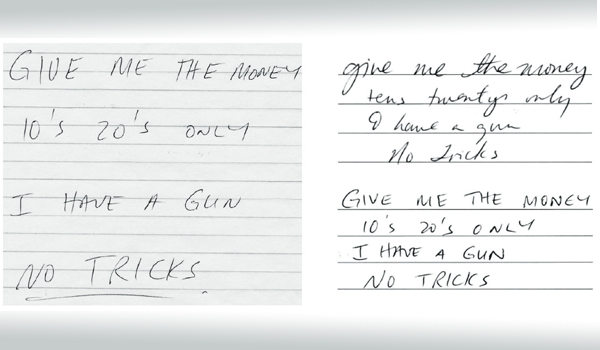 GIVE ME THE MONEY
10's 20's ONLY
I HAVE A GUN
NO TRICKS.
give me the money
tens twentys only
I have a gun
No Tricks
GIVE ME THE MONEY
10's 20's ONLY
I HAVE A GUN
NO TRICKS